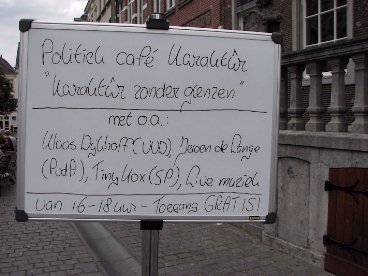 Politiek café Karaktûr
"Karaktûr zonder grenzen"
met o.a.:
Klaas Dijkhoff (VVD), Jeroen de Lange
(PvdA), Tiny Kox (SP), Live muziek
van 16-18 uur - Toegang GRATIS!